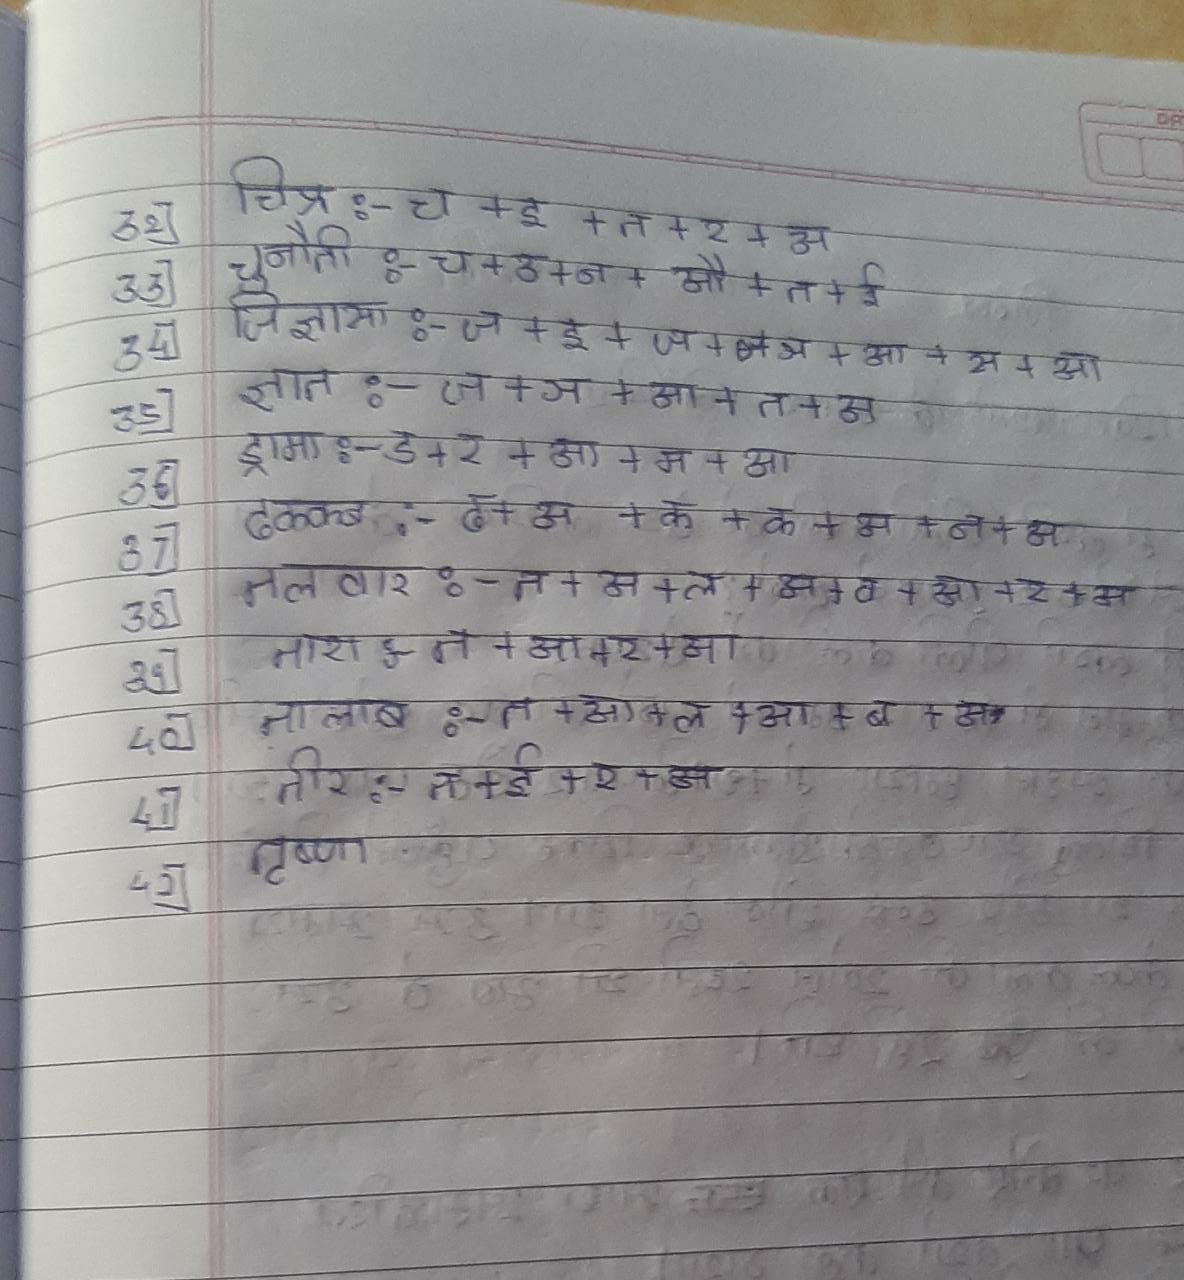 32] चित्र :- च + इ + त + र + अ
33] चुनौती :- च + उ + न + औ + त + ई
34] जिज्ञासा :- ज + इ + ज + ञ + आ + स + आ
35] ज्ञात :- ज + ञ + आ + त + अ
36] ड्रामा :- ड + र + आ + म + आ
37] ढक्कन :- ढ + अ + क + क + अ + न + अ
38] तलवार :- त + अ + ल + अ + व + आ + र + अ
39] तारा :- त + आ + र + आ
40] तालाब :- त + आ + ल + आ + ब + अ
41] तीर :- त + ई + र + अ
42] तृष्णा